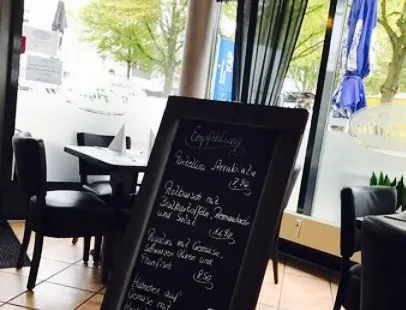 Empfehlung
Tortellini Arrabiata
7.90
Rotbarsch mit
Bratkartoffeln, Remoulade
und Salat
11.90
Rigatoni mit Gemüse,
schwarzen Oliven und
Thunfisch
8.50
Hähnchen auf
Gemüse mit